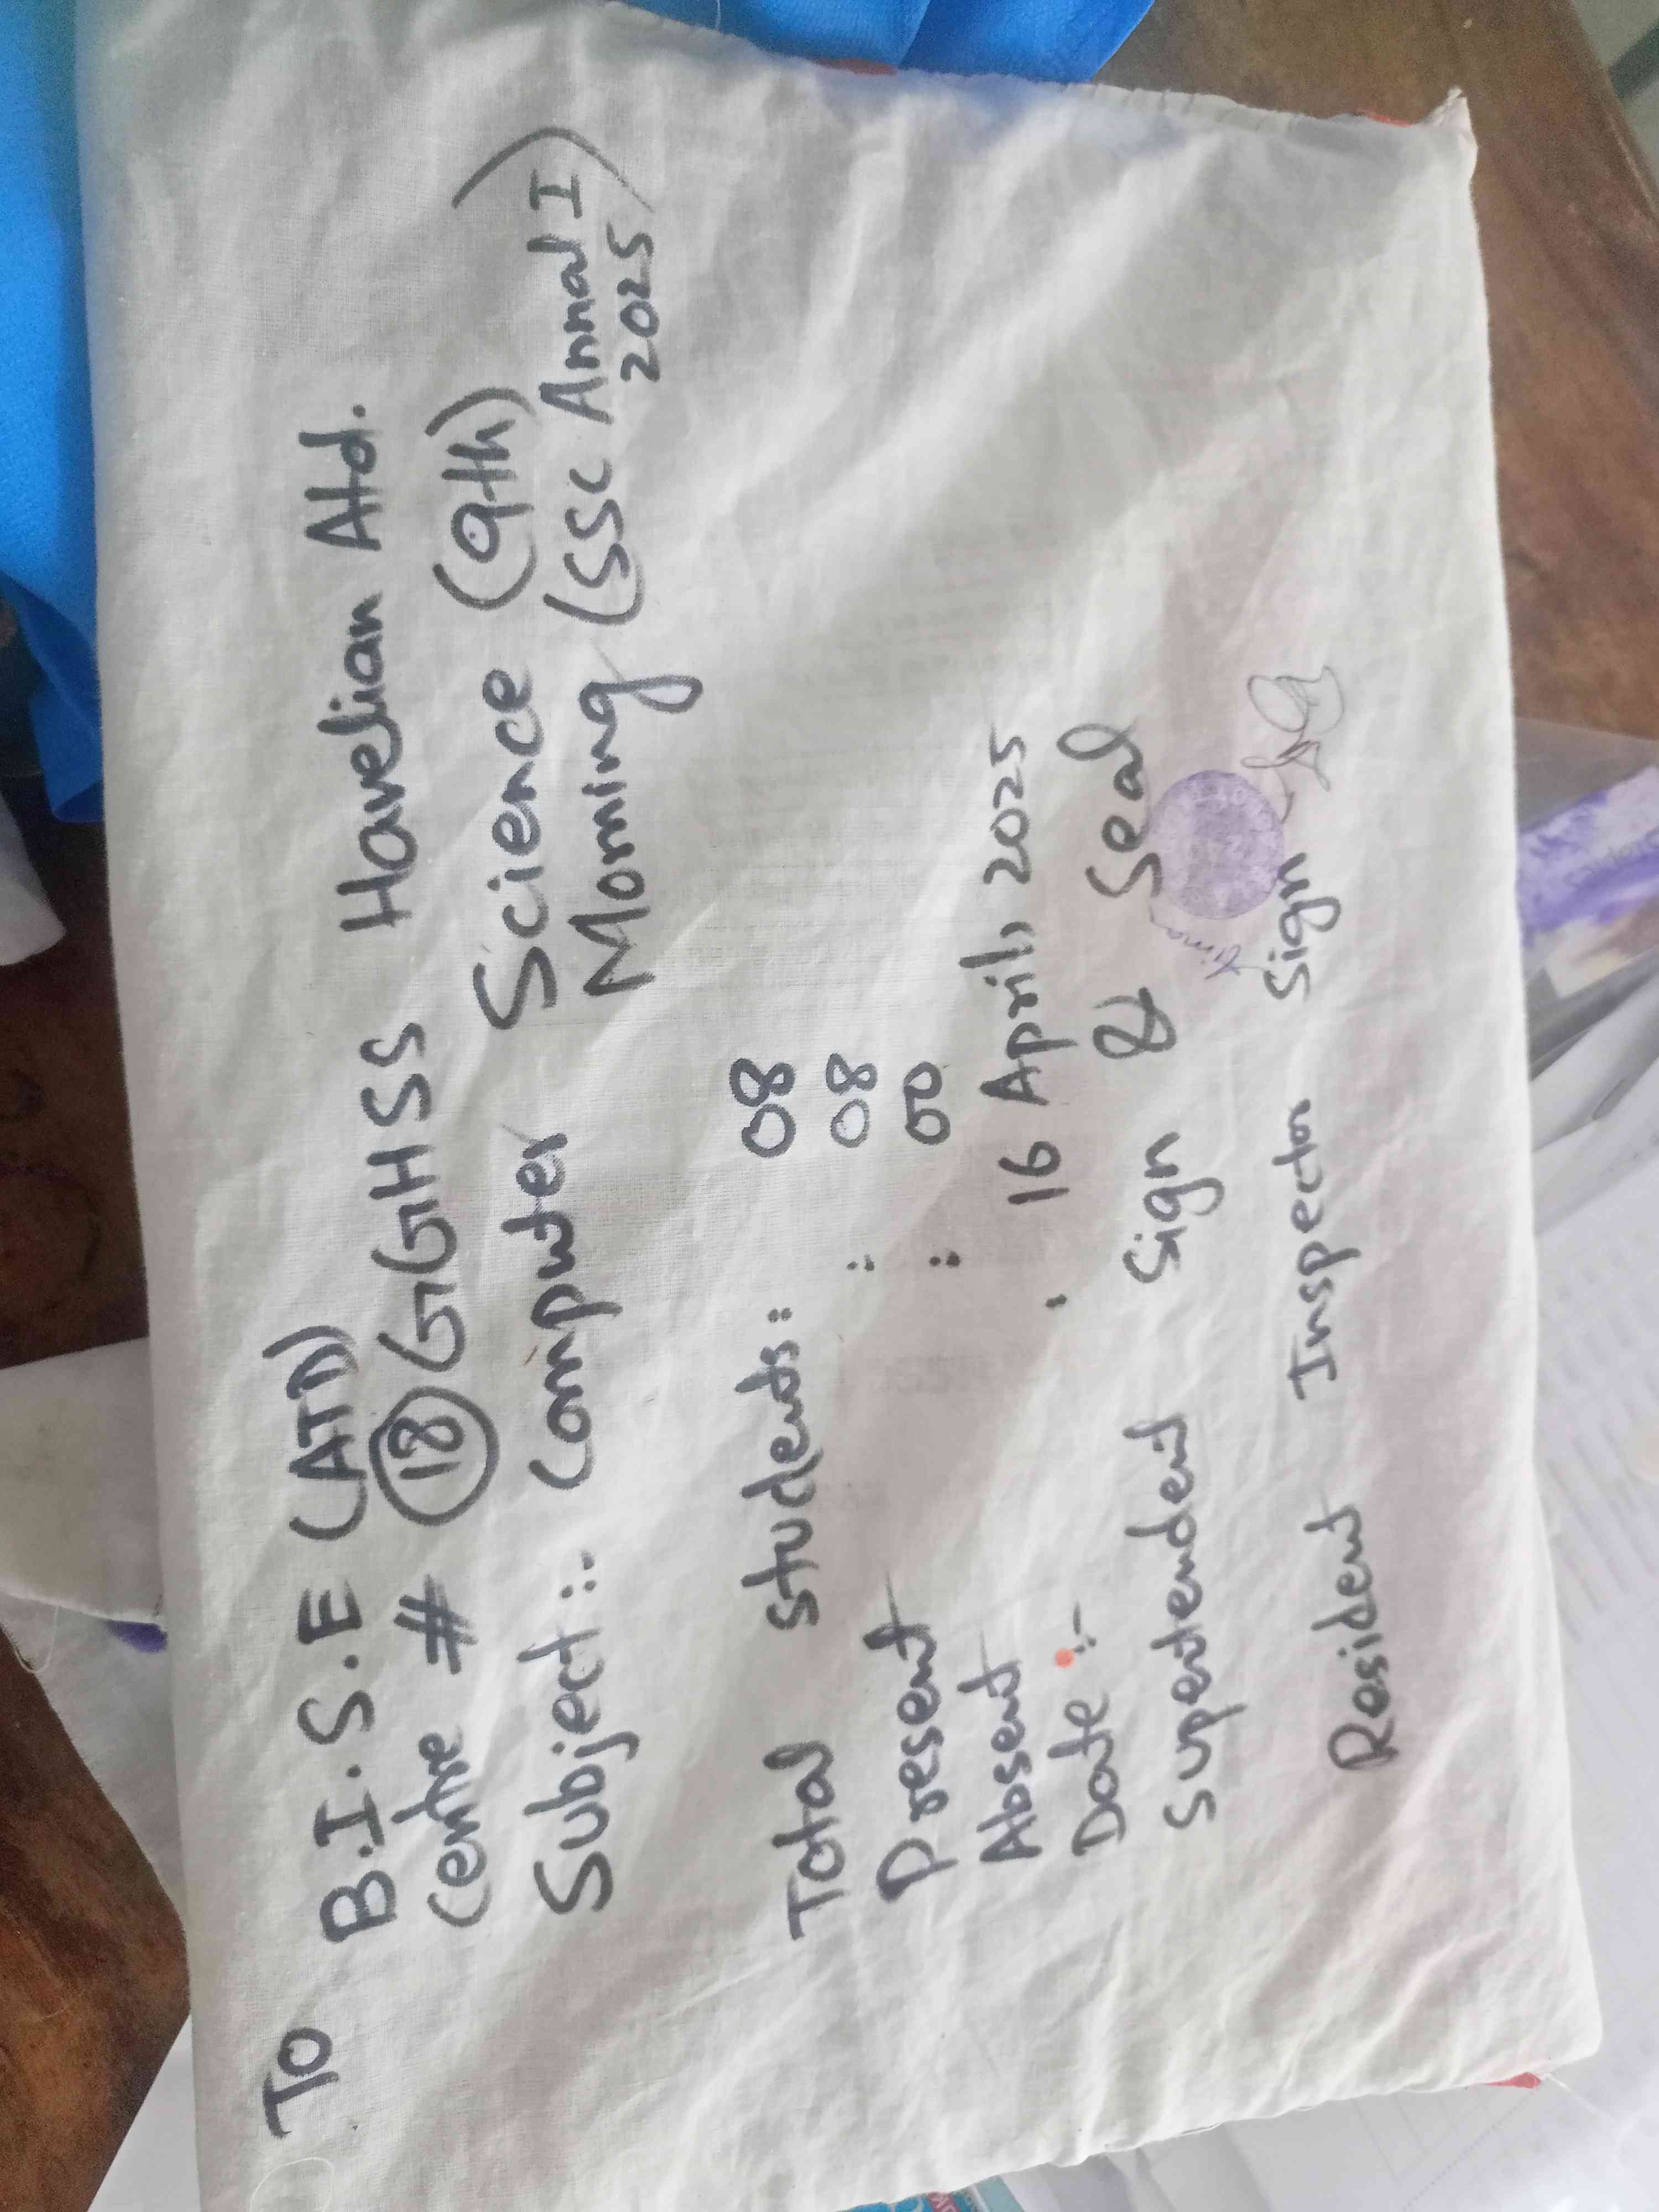 To
B.I.S.E (ATD)
Centre # 18 GGHSS Havelian Atd.
Subject:: Computer Science (9th)
Morning (SSC Annual I
2025)
Total students:: 08
Present : 08
Absent : 00
Date :- 16 April, 2025
Supertendent Sign & Seal
Resident Inspector Sign